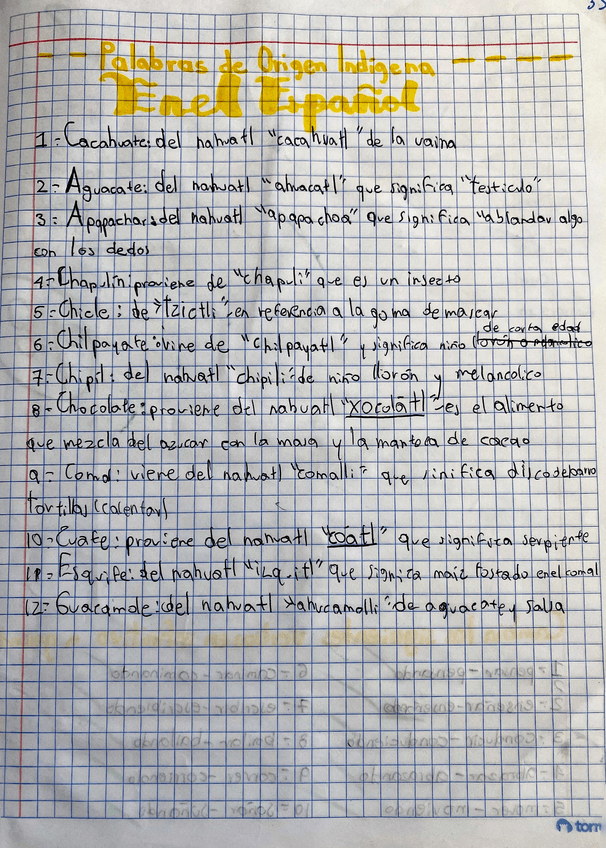 Palabras de Origen Indigena
En el Español
1- Cacahuate: del nahuatl "cacahuatl" de la vaina
2- Aguacate: del nahuatl "ahuacatl" que significa "testiculo"
3- Apapachar: del nahuatl "apapachoa" que significa "ablandar algo
con los dedos
4- Chapulin: proviene de "chapuli" que es un insecto
5- Chicle: de "tzictli" en referencia a la goma de mascar
de corta edad
6- Chilpayate: vine de "chilpayatl" y significa niño
7- Chipil: del nahuatl "chipili" de niño llorón y melancolico
8- Chocolate: proviene del nahuatl "xocolatl" es el alimento
que mezcla del azucar con la masa y la manteca de cacao
9- Comal: viene del nahuatl "comalli" que sinifica disco de barro
tortillas (calentar)
10- Cuate: proviene del nahuatl "coatl" que significa serpiente
11- Esquite: del nahuatl "izquitl" que signica maiz tostado en el comal
12- Guacamole: del nahuatl "ahucamolli" de aguacate y salsa
tom